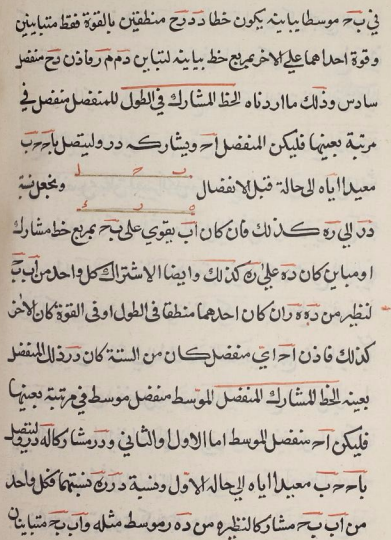 في بح موسطا يباينه يكون خطا دح رح منطقين بالقوة فقط متباينين
وقوة احداهما على الاخر بمربع خط يباينه لتباين دم م ر فاذن دح منفصل
سادس وذلك ما اردناه الخط المشارك في الطول للمنفصل منفصل في
مرتبة بعينها فليكن المنفصل اح ويشاركه در وليتصل باح ح ب
معيدا اياه الى حالة قبل الانفصال ونجعل نسبة
در الى ره كذلك فان كان اب يقوى على بح بمربع خط مشارك
او مباين كان ده على ره كذلك وايضا الاشتراك كل واحد من اب بح
لنظيره من ده ه ر ان كان احدهما منطقا في الطول او في القوة كان الاخر
كذلك فاذن اح اي منفصل كان من الستة كان در ذلك المنفصل
بعينه الخط المشارك للمنفصل الموسط منفصل موسط في مرتبة بعينها
فليكن اح منفصل الموسط اما الاول والثاني و در مشاركا له وليتصل
باح ح ب معيدا اياه الى حاله الاول ونسبة در ره كنسبتهما فكل واحد
من اب بح مشارك لنظيره من ده ه ر موسط مثله و اب بح متباينان